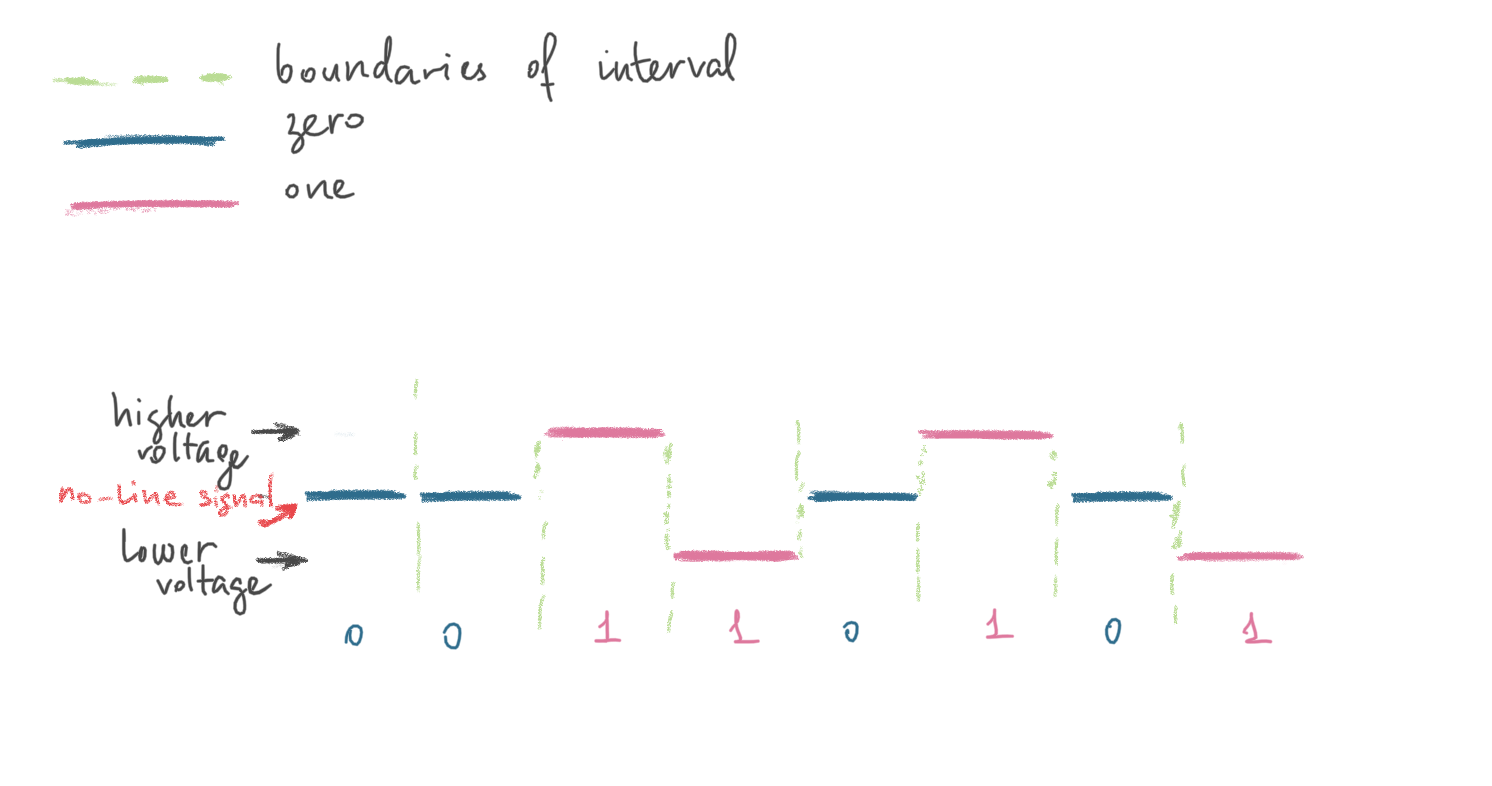 boundaries of interval
zero
one
higher
voltage
no-line signal
lower
voltage
0 0 1 1 0 1 0 1